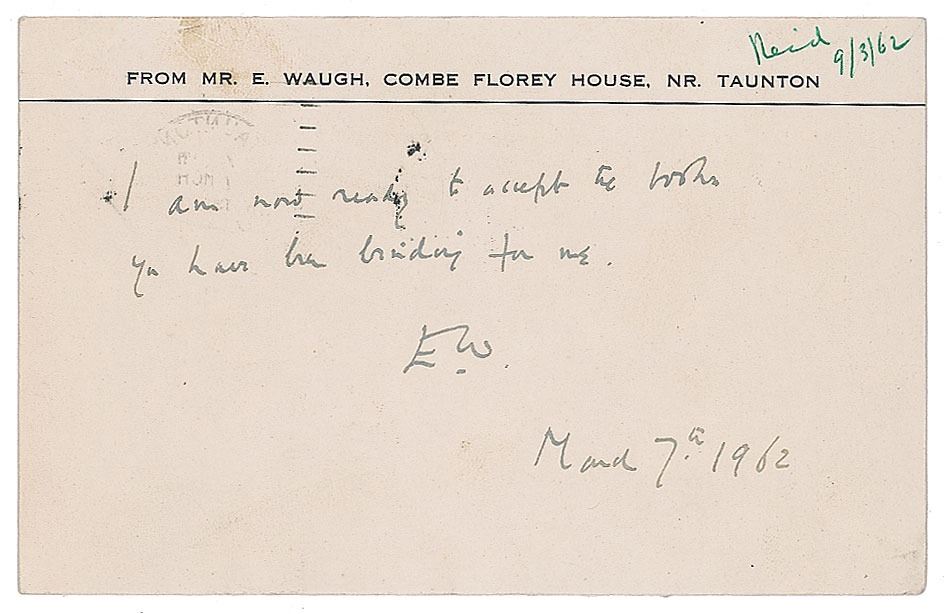 Recd 9/3/62
FROM MR. E. WAUGH, COMBE FLOREY HOUSE, NR. TAUNTON
I am now ready to accept the books
you have been binding for me.
E.W.
March 7th 1962